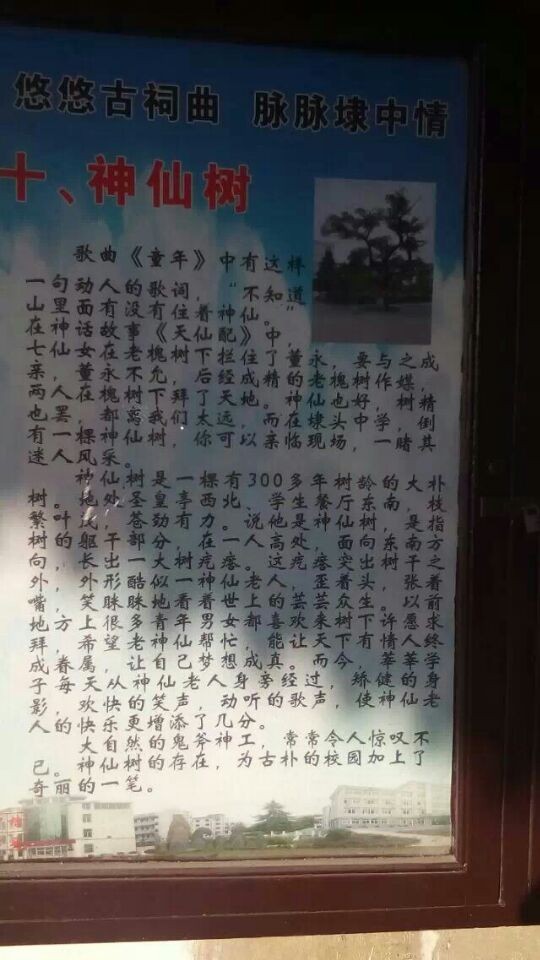 悠悠古祠曲 脉脉埭中情
十、神仙树
歌曲《童年》中有这样
一句动人的歌词，“不知道
山里面有没有住着神仙。”
在神话故事《天仙配》中，
七仙女在老槐树下拦住了董永，要与之成
亲，董永不允，后经成精的老槐树作媒，
两人在槐树下拜了天地。神仙也好，树精
也罢，都离我们太远，而在埭头中学，倒
有一棵神仙树，你可以亲临现场，一睹其
迷人风采。
神仙树是一棵有300多年树龄的大朴
树。地处圣皇亭西北、学生餐厅东南，枝
繁叶茂，苍劲有力。说他是神仙树，是指
树的躯干部分，在一人高处，面向东南方
向，长出一大树疙瘩。这疙瘩突出树干之
外，外形酷似一神仙老人，歪着头，张着
嘴，笑眯眯地看着世上的芸芸众生。以前
地方上很多青年男女都喜欢来树下许愿求
拜，希望老神仙帮忙，能让天下有情人终
成眷属，让自己梦想成真。而今，莘莘学
子每天从神仙老人身旁经过，矫健的身
影，欢快的笑声，动听的歌声，使神仙老
人的快乐更增添了几分。
大自然的鬼斧神工，常常令人惊叹不
已。神仙树的存在，为古朴的校园加上了
奇丽的一笔。